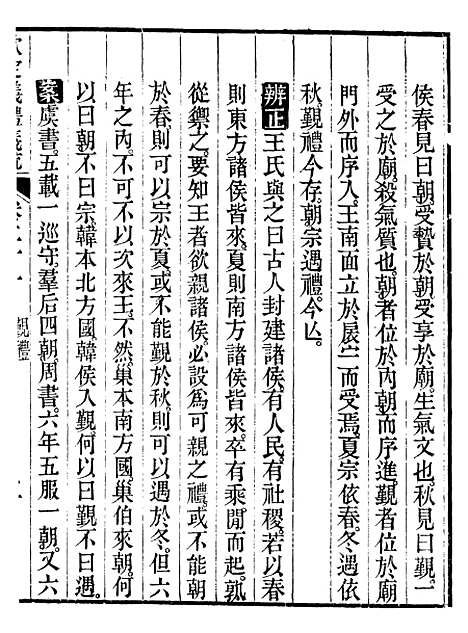 侯春見曰朝。受贄於朝。受享於廟。生氣文也。秋見曰覲。一
受之於廟。殺氣質也。朝者位於內朝而序進。覲者位於廟
門外而序入。王南面立於扆宁而受焉。夏宗依春。冬遇依
秋。覲禮今存。朝宗遇禮。今亾。
辨正王氏與之曰古人封建諸侯。有人民。有社稷。若以春
則東方諸侯皆來。夏則南方諸侯皆來。卒有乘閒而起。孰
從禦之。要知王者欲親諸侯。必設爲可親之禮。或不能朝
於春。則可以宗於夏。或不能覲於秋。則可以遇於冬。但六
年之內。不可不以次來王。不然。巢本南方國。巢伯來朝。何
以曰朝不曰宗。韓本北方國。韓侯入覲。何以曰覲不曰遇。
案虞書。五載一巡守。羣后四朝。周書。六年五服一朝。又六
覲禮